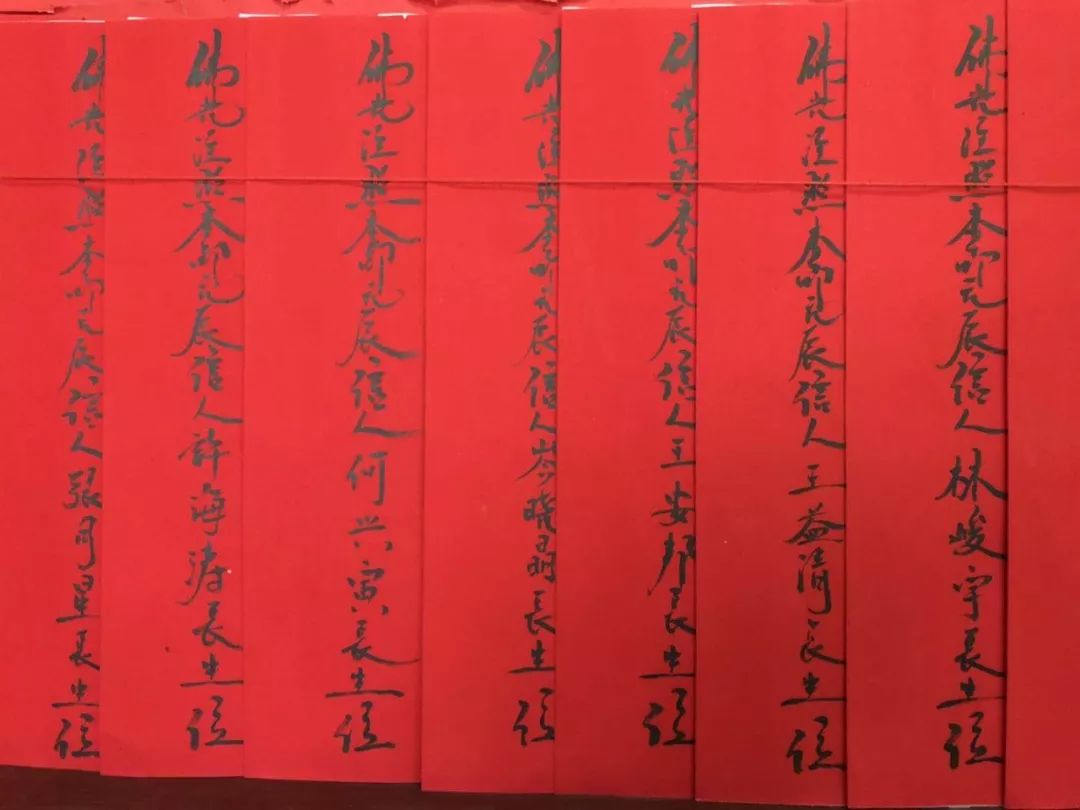 佛光注照本命元辰信人林峻宇長生位
佛光注照本命元辰信人王益清長生位
佛光注照本命元辰信人王安邦長生位
佛光注照本命元辰信人岑晓明長生位
佛光注照本命元辰信人何兴寅長生位
佛光注照本命元辰信人許海涛長生位
佛光注照本命元辰信人張星長生位